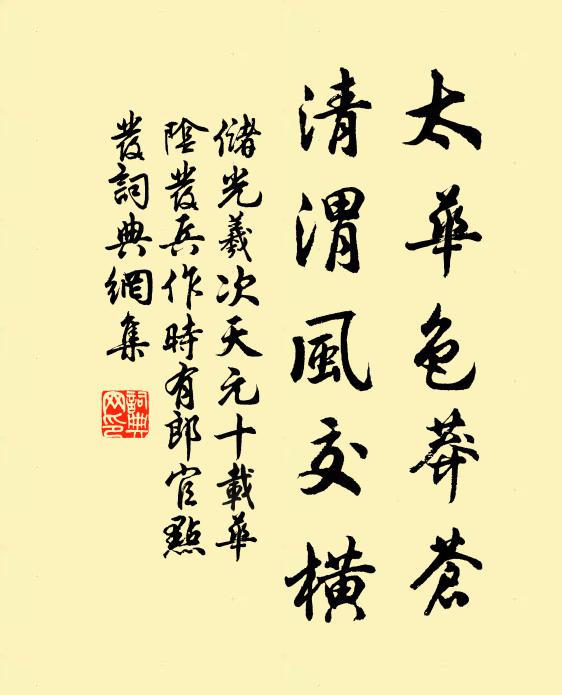 太華色莽蒼
清渭風交橫
儲光羲次天元十載華
陰發兵作時有郎官點
發詞典網集
詞典
网印